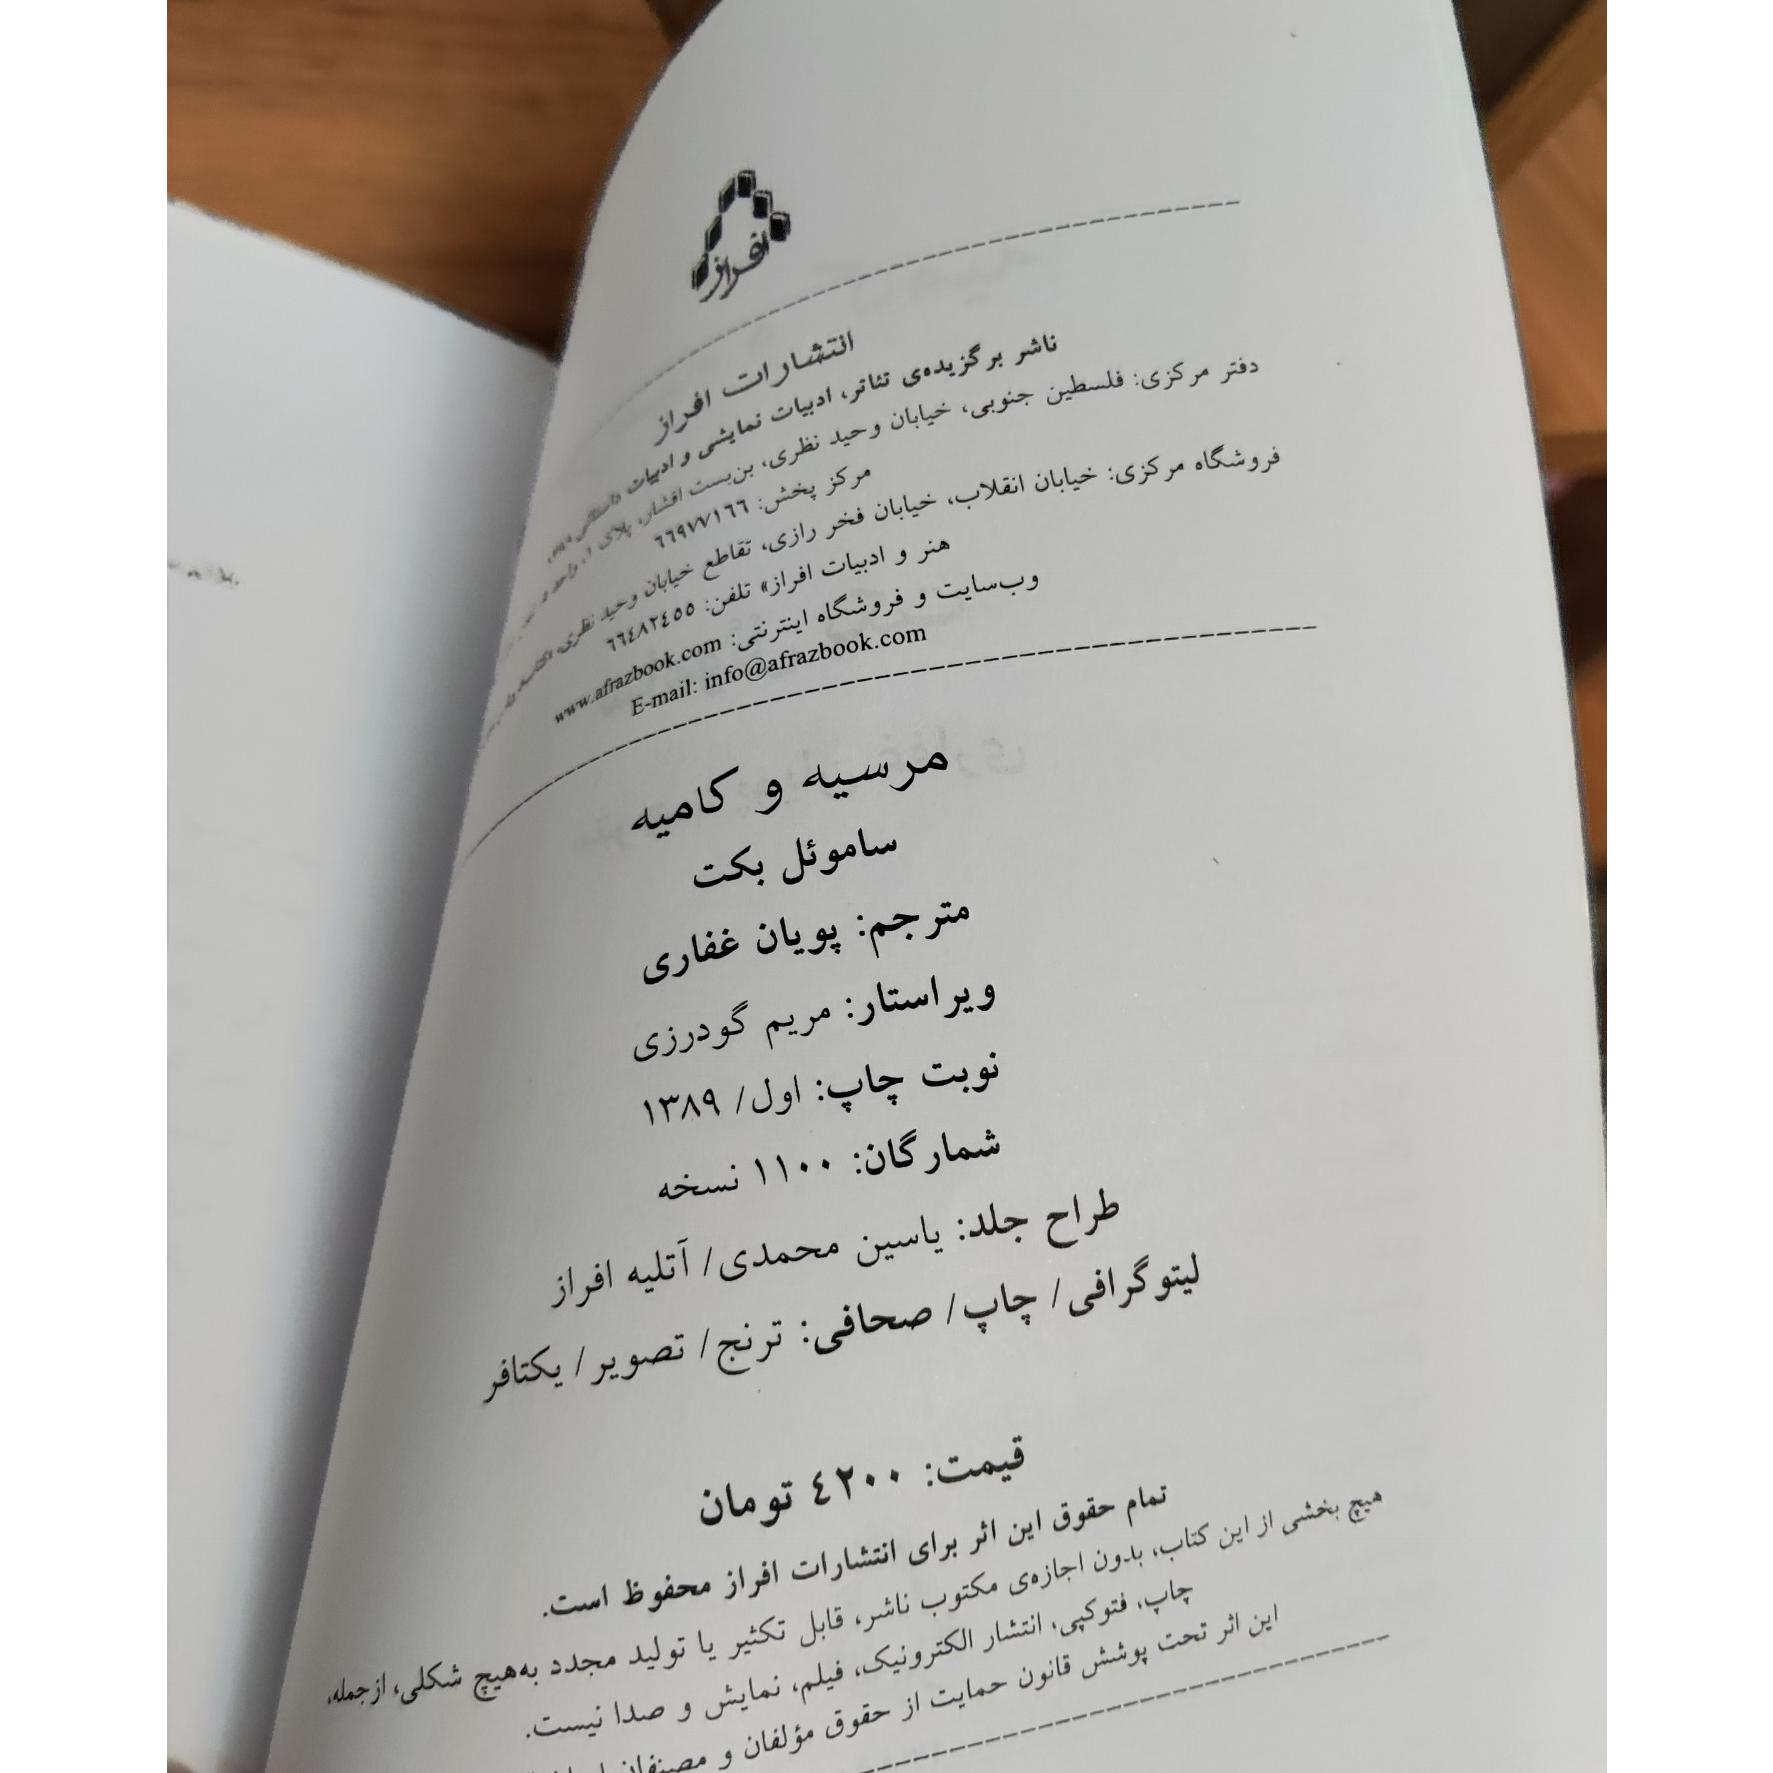 افراز
انتشارات افراز
ناشر برگزیده‌ی تئاتر، ادبیات نمایشی و ادبیات داستانی
دفتر مرکزی: فلسطین جنوبی، خیابان وحید نظری، بن‌بست افشار، پلاک ۱، واحد
مرکز پخش: ٦٦٩٧٧١٦٦
فروشگاه مرکزی: خیابان انقلاب، خیابان فخر رازی، تقاطع خیابان وحید نظری،
هنر و ادبیات افراز» تلفن: ٦٦٤٨٢٤٥٥
وب‌سایت و فروشگاه اینترنتی: www.afrazbook.com
E-mail: info@afrazbook.com
مرسیه و کامیه
ساموئل بکت
مترجم: پویان غفاری
ویراستار: مریم گودرزی
نوبت چاپ: اول/ ۱۳۸۹
شمارگان: ۱۱۰۰ نسخه
طراح جلد: یاسین محمدی/ آتلیه افراز
لیتوگرافی/ چاپ/ صحافی: ترنج/ تصویر/ یکتافر
قیمت: ٤٢٠٠ تومان
تمام حقوق این اثر برای انتشارات افراز محفوظ است.
هیچ بخشی از این کتاب، بدون اجازه‌ی مکتوب ناشر، قابل تکثیر یا تولید مجدد به‌هیچ شکلی، ازجمله،
چاپ، فتوکپی، انتشار الکترونیک، فیلم، نمایش و صدا نیست.
این اثر تحت پوشش قانون حمایت از حقوق مؤلفان و مصنفان